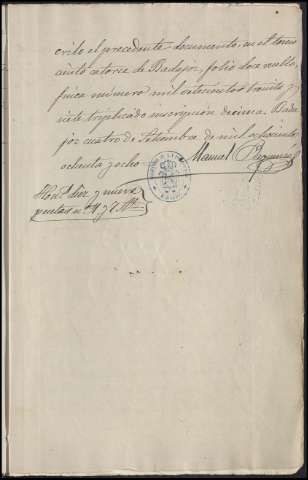 crito el precedente documento, en el tomo
ciento catorce de Badajoz, folio dos vuelto,
finca número mil ochocientos treinta y
siete triplicado inscripción décima. Bada
joz cuatro de Setiembre de mil ochocientos
ochenta y ocho
Manuel
Hon.s diez y nueve
pesetas n.os